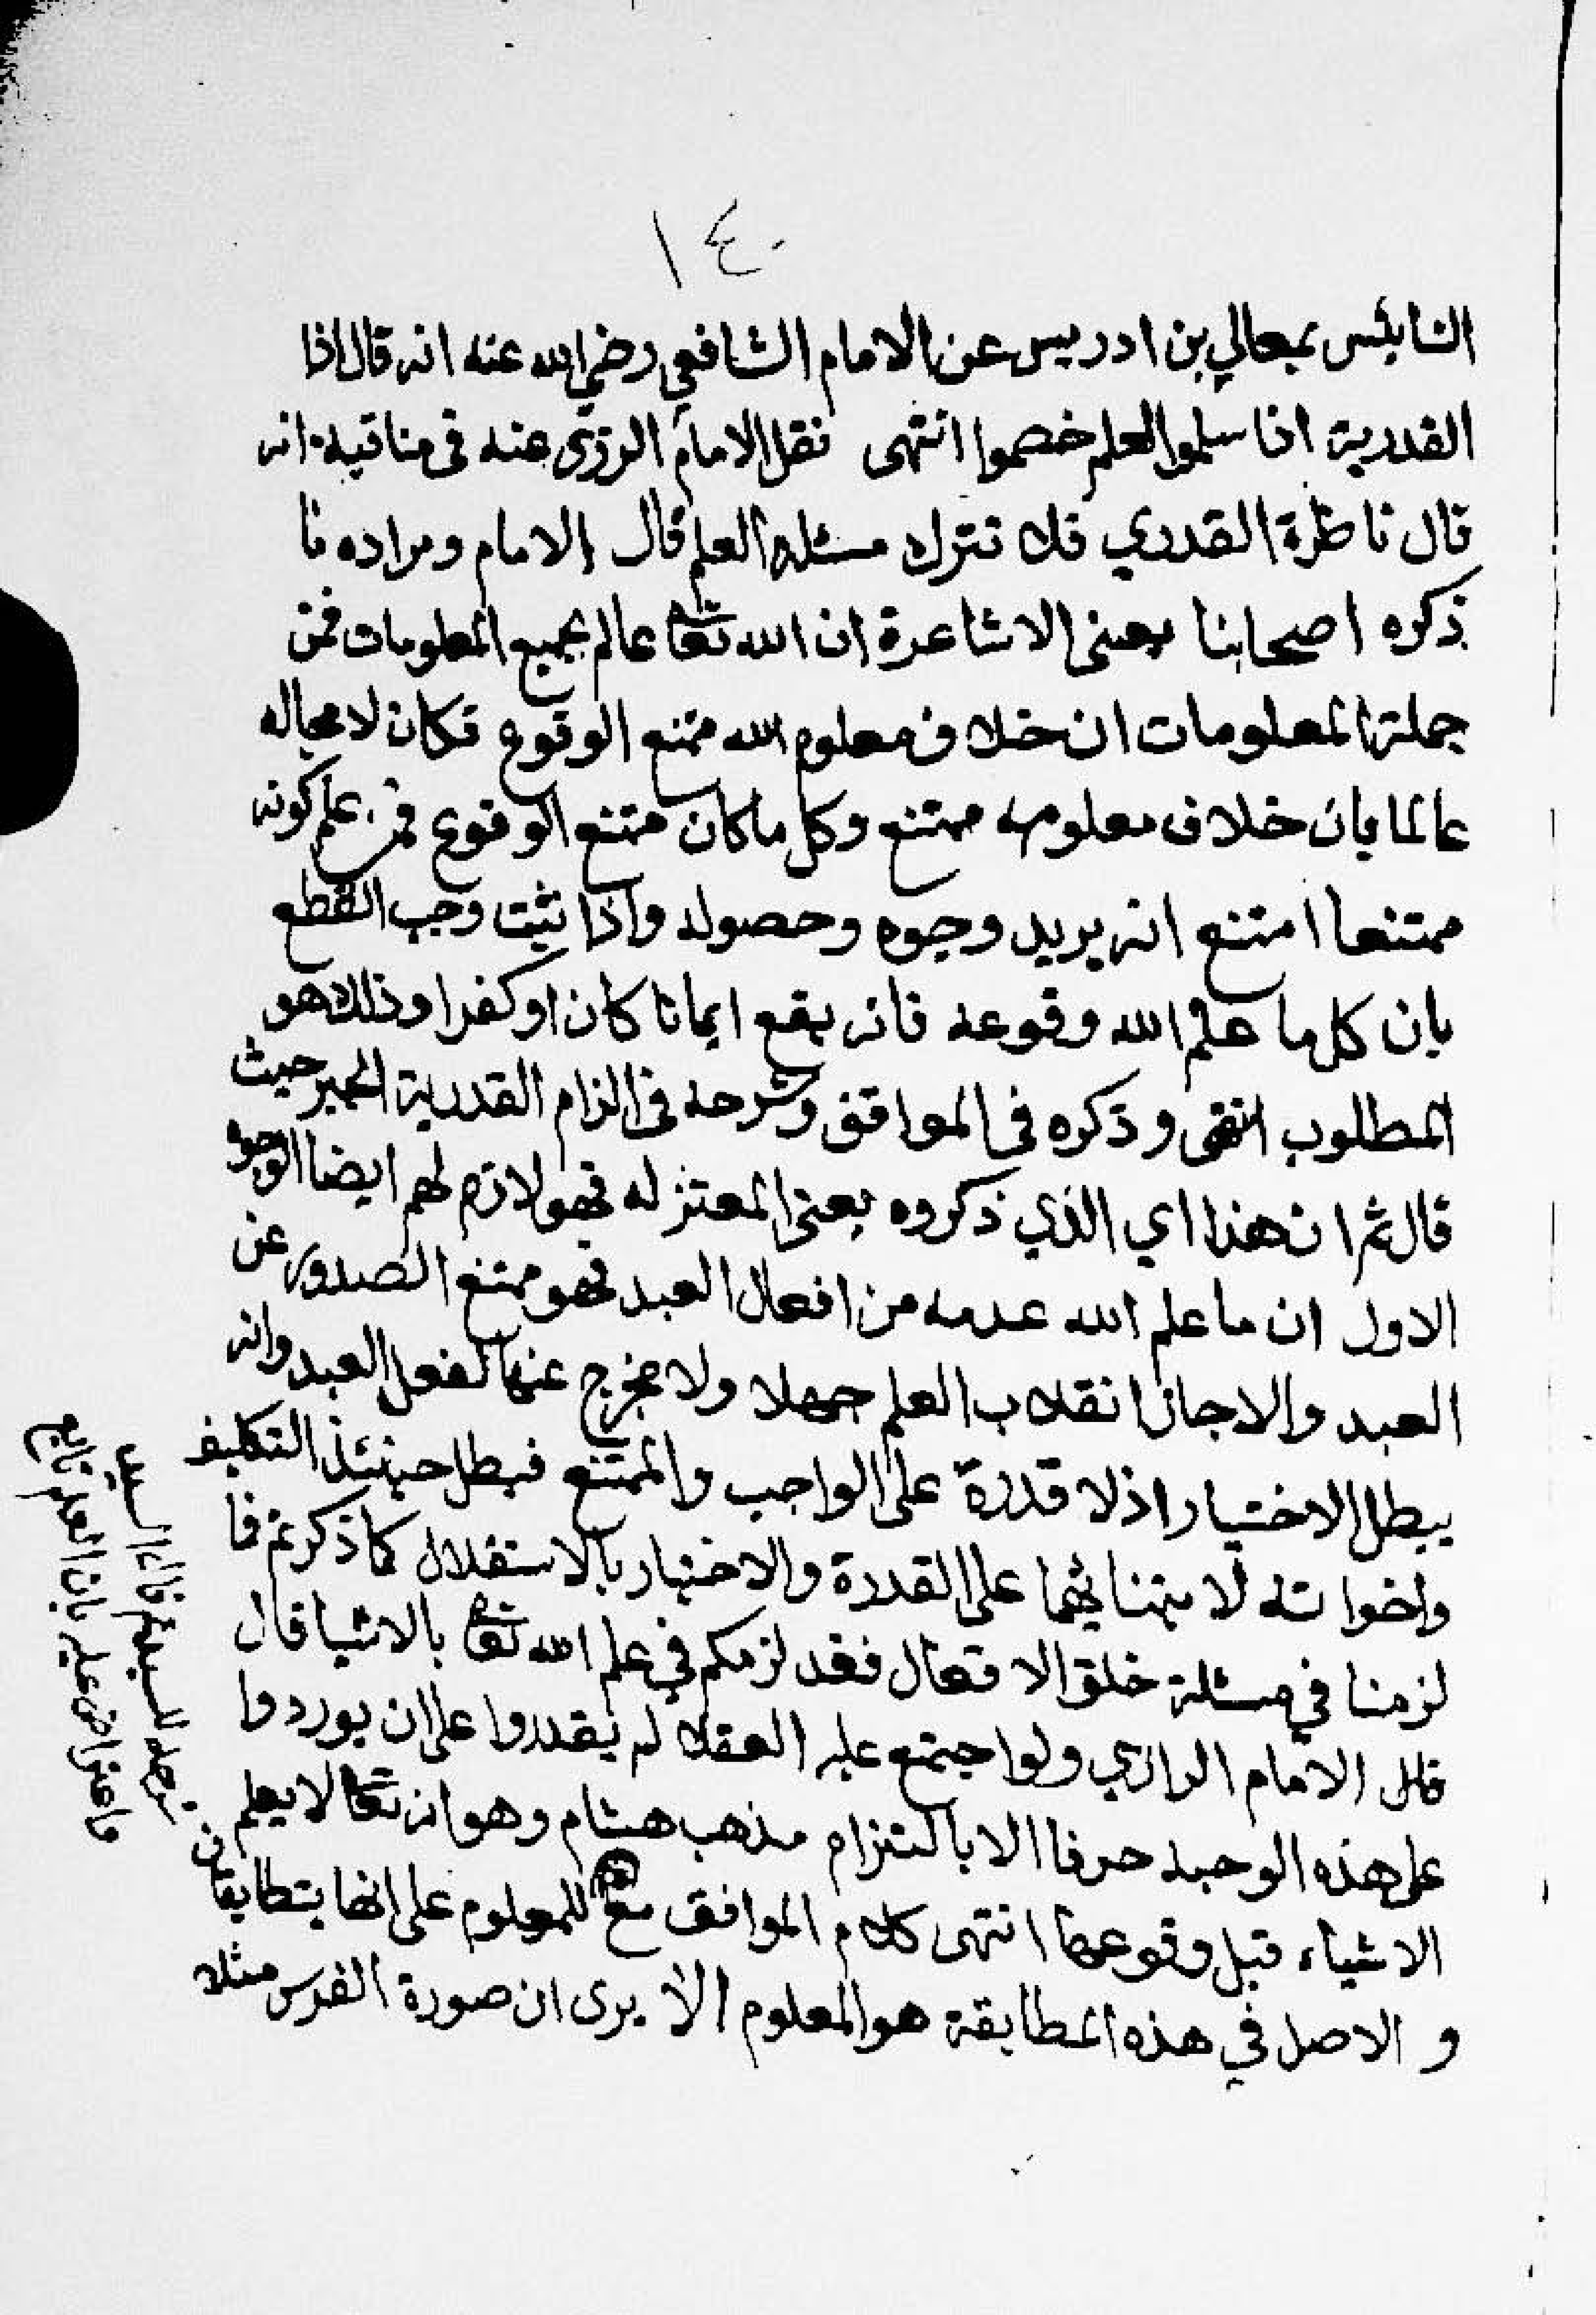 ١٤٠
النابلس بمعالي بن ادريس عن الامام الشافعي رضي الله عنه انه قال اذا
القدرية اذا سلموا العلم خصموا انتهى نقل الامام الرزى عنه فى مناقبه انه
قال ناظرة القدري فلا تترك مسئلة العلم قال الامام ومراده نا
ذكره اصحابنا يعنى الاشاعرة ان الله تعا عالم بجميع المعلومات فمن
جملة المعلومات ان خلاف معلوم الله ممتنع الوقوع فكان لا محاله
عالما بان خلاف معلومه ممتنع وكل ما كان ممتنع الوقوع فمن علم كونه
ممتنعا امتنع انه يريد وجوه وحصوله واذا ثبت وجب القطع
بان كل ما علم الله وقوعه فانه يقع ايمانا كان او كفرا وذلك هو
المطلوب انتهى وذكره فى المواقف وشرحه فى الزام القدرية الجبر حيث
قال ثم ان هذا اي الذي ذكروه يعنى المعتزله فهو لازم لهم ايضا الوجوه
الاول ان ما علم الله عدمه من افعال العبد فهو ممتنع الصدور عن
العبد والاجاز انقلاب العلم جهلا ولا مخرج عنها لفعل العبد وانه
يبطل الاختيار اذ لا قدرة على الواجب والممتنع فبطل حينئذ التكليف
واخواته لا بتنائهما على القدرة والاختيار بالاستقلال كما ذكرتم فا
لزمنا في مسئلة خلق الافعال فقد لزمكم في علم الله تعا بالاشيا قال
قال الامام الرازي ولو اجتمع عليه العقلا لم يقدروا على ان يوردوا
على هذه الوجيه حرفا الا بالتزام مذهب هشام وهو انه تعا لا يعلم
الاشياء قبل وقوعها انتهى كلام المواقف مع للمعلوم على انها يتطابقان
و الاصل في هذه المطابقة هو المعلوم الا يرى ان صورة الفرس مثلا
شرحه للسيد قال السيد
واعتراض عليه بان العلم تابع